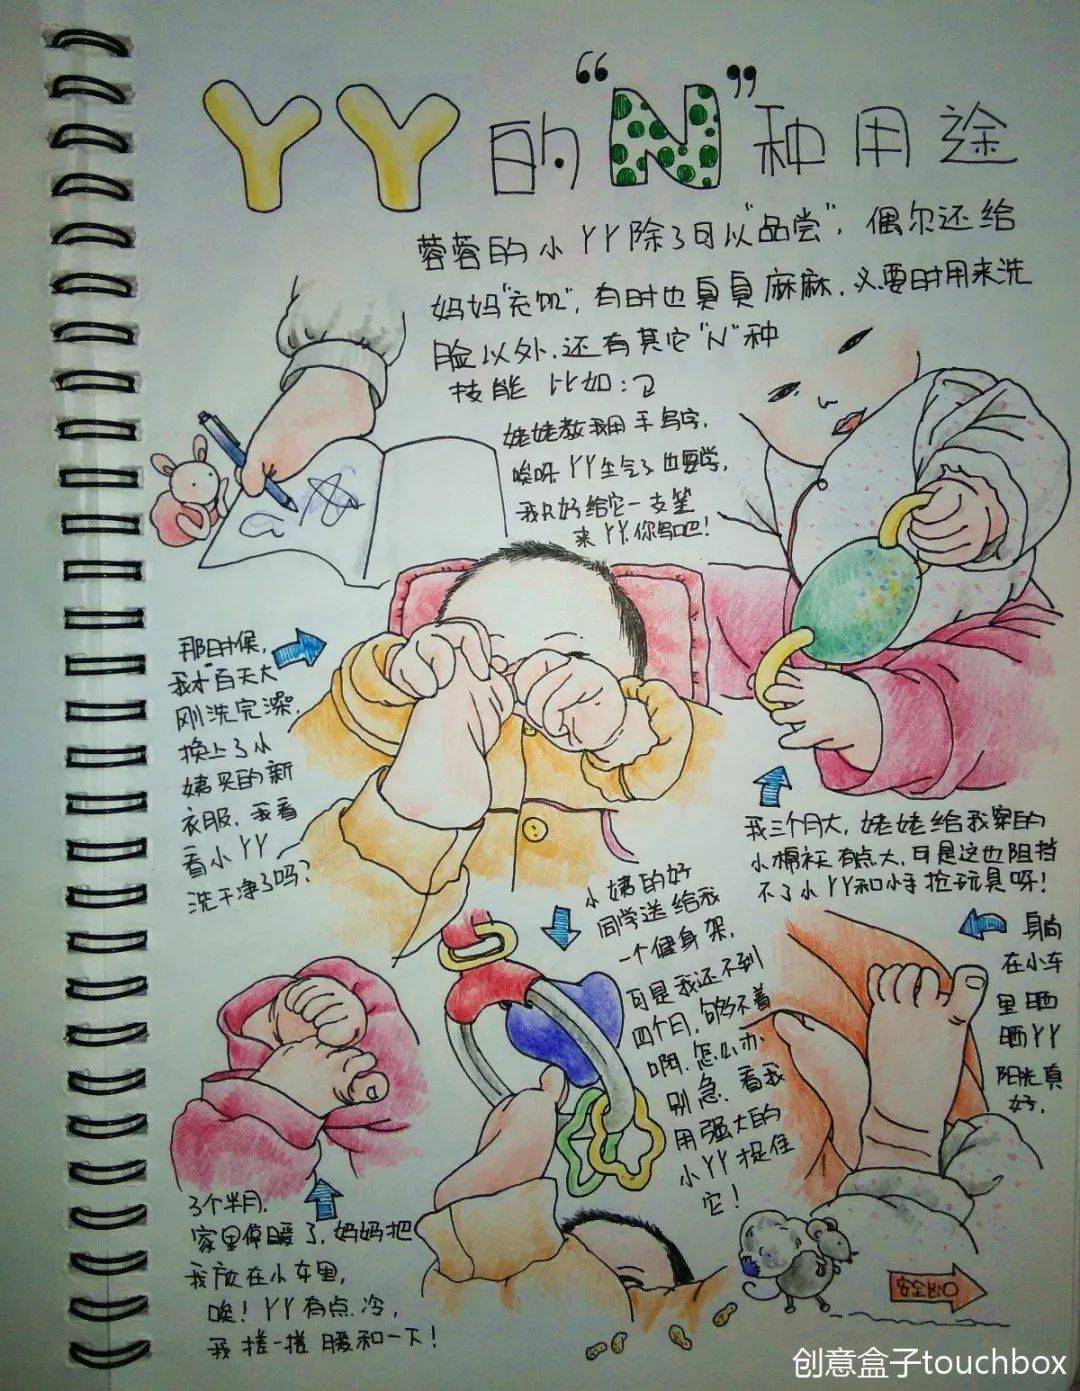 YY的“N”种用途
蓉蓉的小YY除了可以“品尝”，偶尔还给
妈妈“充饥”，有时也臭臭麻麻．必要时用来洗
脸以外．还有其它“N”种
技能 比如：
姥姥教我用手写字，
唉呀YY生气了也要学，
我只好给它一支笔
来YY，你写吧！
那时候，
我才百天大
刚洗完澡，
换上了小
姨买的新
衣服．我看
看小YY
洗干净了吗？
我三个月大，姥姥给我穿的
小棉袄有点大，可是这也阻挡
不了小YY和小手抢玩具呀！
小姨的好
同学送给我
一个健身架，
可是我还不到
四个月，够不着
啊．怎么办．
别急．看我
用强大的
小YY捉住
它！
躺
在小车
里晒
晒YY
阳光真
好．
3个半月．
家里停暖了，妈妈把
我放在小车里，
唉！YY有点冷，
我搓一搓暖和一下！
安全出口
创意盒子touchbox